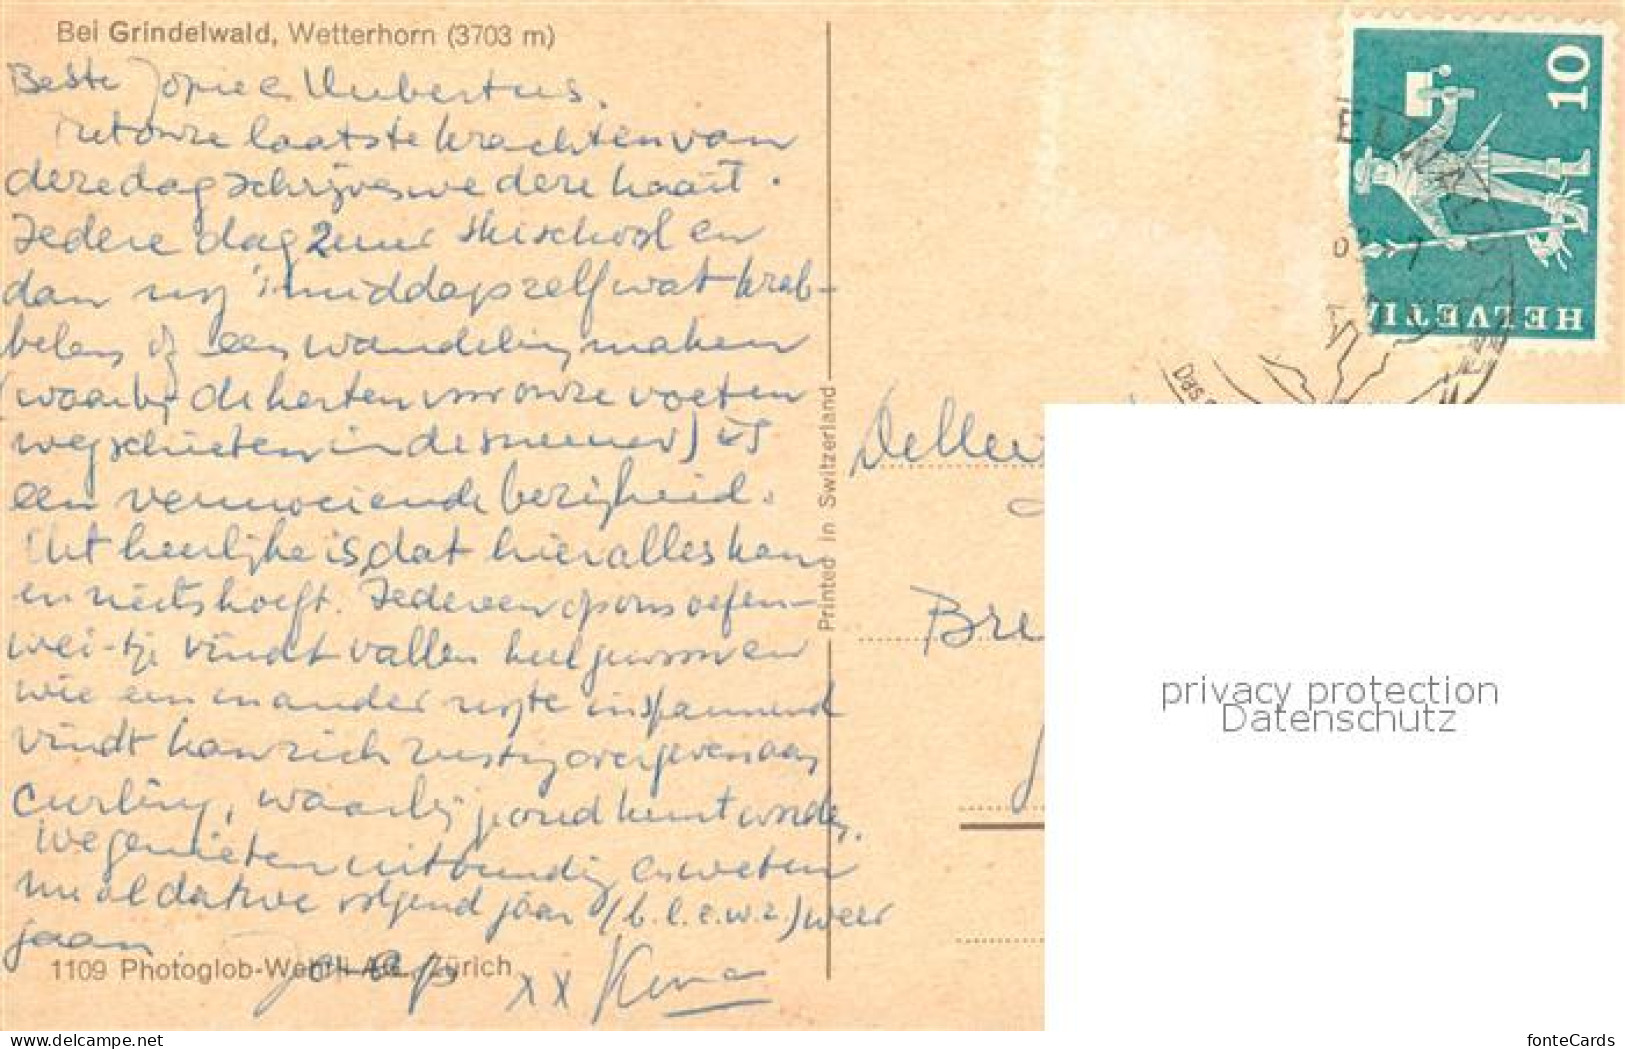 Bei Grindelwald, Wetterhorn (3703 m)
Beste Jopie e Hubertus.
Met onze laatste krachten van
deze dag schrijven we deze kaart.
Iedere dag 2 uur skischool en
dan nog 's middags zelf wat krab-
belen of een wandeling maken
(waarbij de herten voor onze voeten
wegschieten in de sneeuw) is
een vermoeiende bezigheid.
Het heerlijke is, dat hier alles kan
en niets hoeft. Iedereen op ons oefen-
wei-tje vindt vallen heel gewoon en
wie een en ander niet inspannend
vindt kan zich rustig overgeven aan
curling, waarbij gerookt kunt worden.
We genieten uitbundig en weten
nu al dat we volgend jaar (b.l.e.w.z.) weer
gaan
Jaap
xx
1109 Photoglob-Wehrli AG Zürich
Printed in Switzerland
HELVETIA
10
Das
Bre
privacy protection
Datenschutz
www.ak-ansichtskarten.de
fonteCards